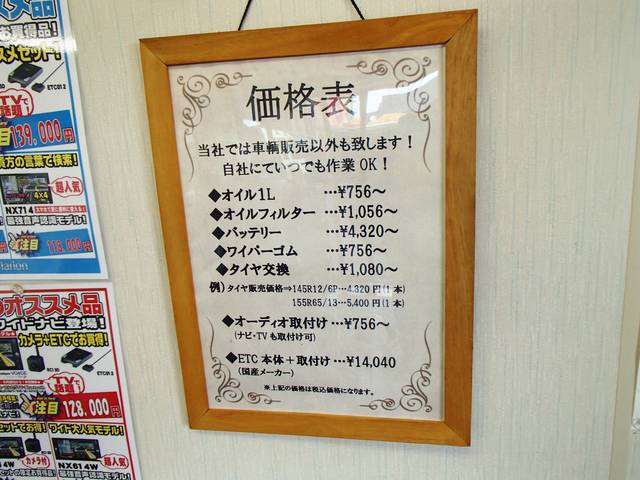 価格表
当社では車輌販売以外も致します!
自社にていつでも作業OK!
◆オイル1L …¥756~
◆オイルフィルター …¥1,056~
◆バッテリー …¥4,320~
◆ワイパーゴム …¥756~
◆タイヤ交換 …¥1,080~
例)タイヤ販売価格⇒145R12/6P…4,320円(1本)
155R65/13…5,400円(1本)
◆オーディオ取付け…¥756~
(ナビ・TVも取付け可)
◆ETC本体+取付け…¥14,040
(国産メーカー)
※上記の価格は税込価格になります。
お買得品!
スメセット!
ETC012
TVで
話題!
139,000円
貴方の言葉で検索!
超人気
4x4
NX714
最強音声認識モデル!
注目
118,000円
オススメ品
ワイドナビ登場!
カメラ+ETCでお買得!
ETC012
TVで
話題!
注目
128,000円
セットでお得!
ワイド大人気モデル!
カメラ付
NX614W
超人気